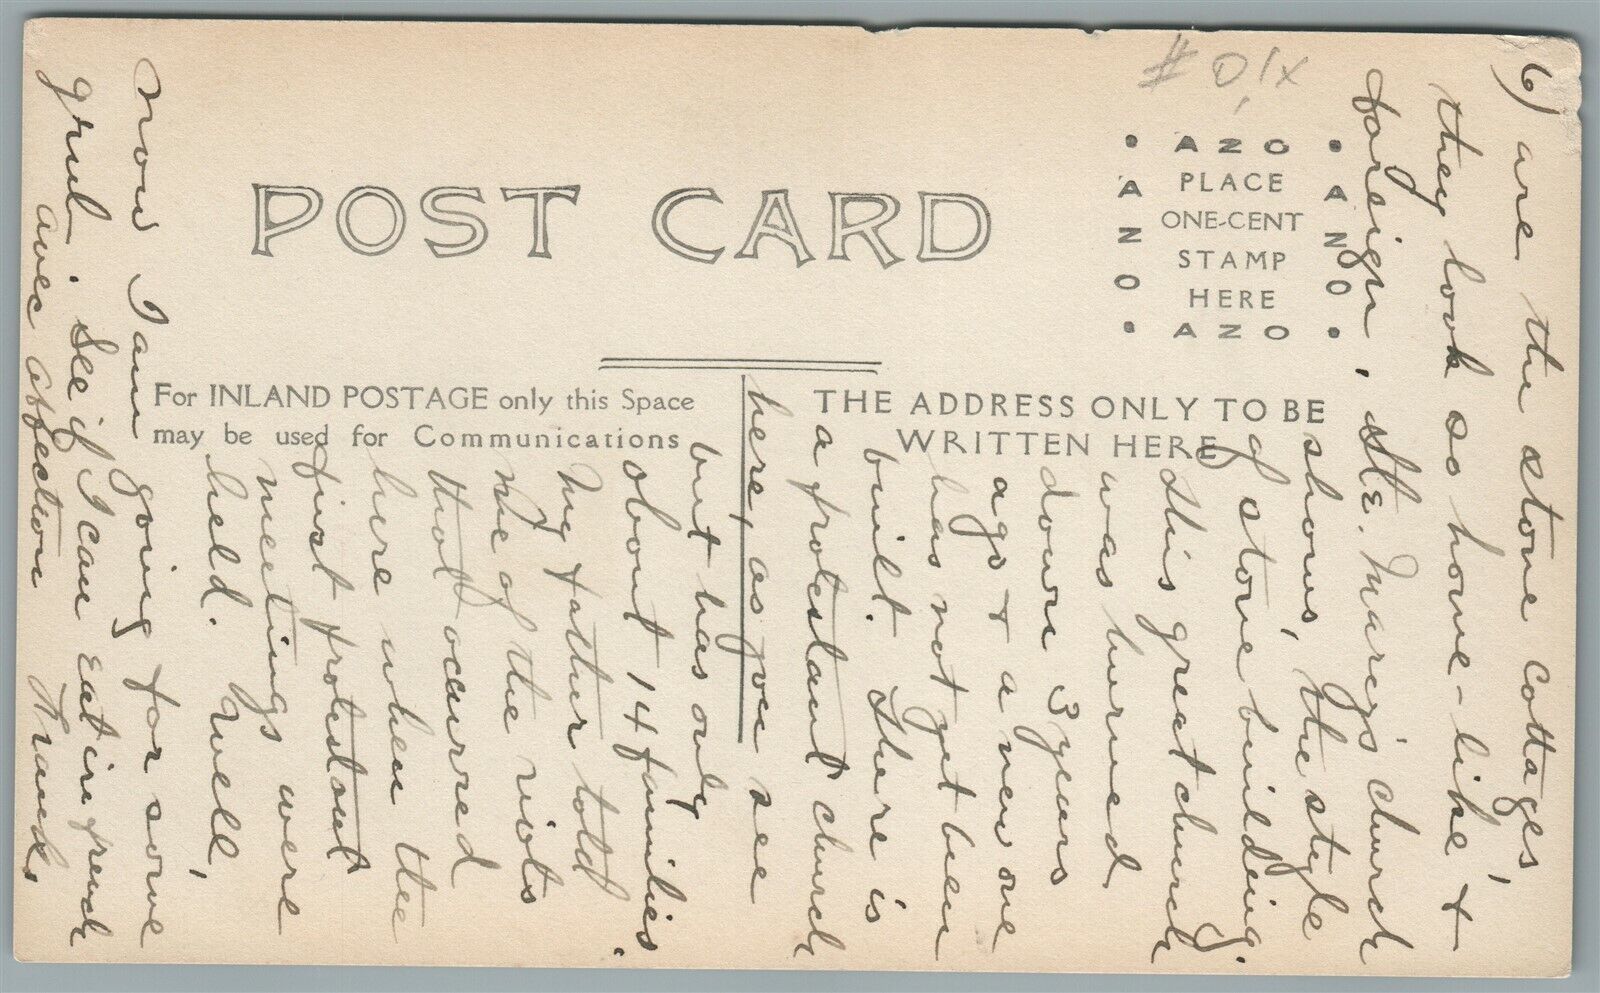 # 0,1x
POST CARD
AZO
PLACE
ONE-CENT
STAMP
HERE
AZO
AZO
AZO
For INLAND POSTAGE only this Space
may be used for Communications
THE ADDRESS ONLY TO BE
WRITTEN HERE
6) are the stone cottages,
they look so home-like &
foreign, Ste. Marie's church
shows, the style
of stone building.
This great church
was burned
down 3 years
ago & a new one
has not yet been
built. There is
a protestant church
here, as you see
but has only
about 14 families.
My father told
me of the riots
that occurred
here when the
first protestant
meetings were
held. Well,
now I am going for some
grub. See if I can eat in french
avec affection